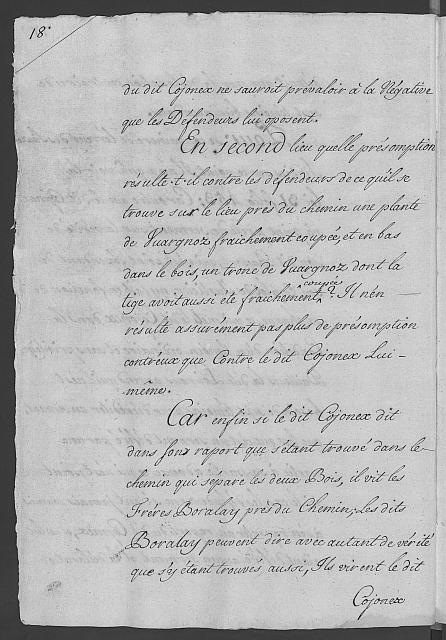 18.
du dit Cojonex ne sauroit prévaloir à la Négative
que les Défendeurs lui oposent.
En second lieu quelle présomption
résulte-t-il contre les défendeurs de ce qu'il se
trouve sur le lieu près du chemin une plante
de Vuargnoz fraichement coupée, et en bas
dans le bois, un tronc de Vuargnoz dont la
coupée
tige avoit aussi été fraichement ^? Il n'en —
résulte assurément pas plus de présomption
contr'eux que Contre le dit Cojonex Lui-
même.
Car enfin si le dit Cojonex dit
dans son raport que s'étant trouvé dans le
chemin qui sépare les deux Bois, il vit les
Fréres Boralay près du Chemin; Les dits
Boralay peuvent dire avec autant de vérité
que s'y étant trouvés aussi, Ils virent le dit
Cojonex